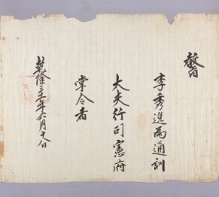 敎旨
李秀進爲通訓
大夫行司憲府
掌令者
乾隆年六月十日